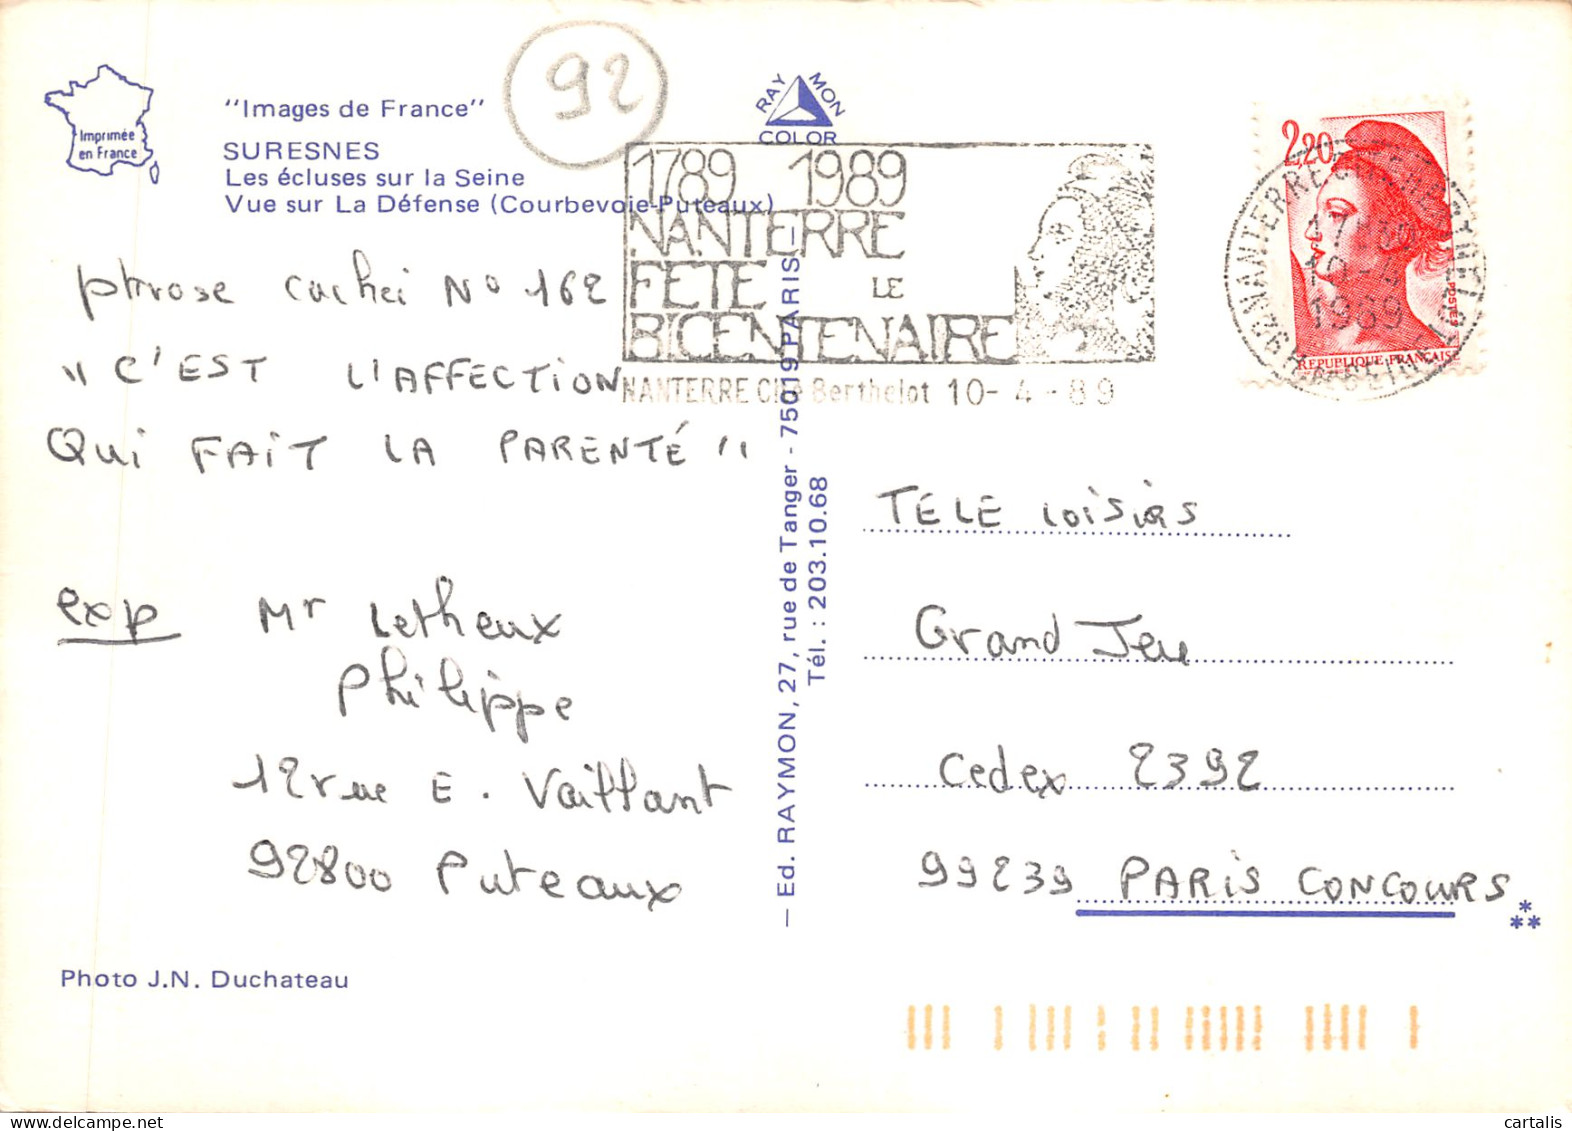 Imprimée
en France
"Images de France"
SURESNES
Les écluses sur la Seine
Vue sur La Défense (Courbevoie-Puteaux)
92
RAYMON
COLOR
1789 1989
NANTERRE
FETE LE
BICENTENAIRE
NANTERRE Cité Berthelot 10-4-89
2,20
POSTES
REPUBLIQUE FRANÇAISE
phrase cachei N° 162
"C'EST L'AFFECTION
QUI FAIT LA PARENTÉ"
exp Mr Letheux
Philippe
12 rue E. Vaillant
92800 Puteaux
Photo J.N. Duchateau
— Ed. RAYMON, 27, rue de Tanger - 75019 PARIS —
Tél. : 203.10.68
TELE Loisirs
Grand Jeu
Cedex 2392
99239 PARIS CONCOURS
cartalis